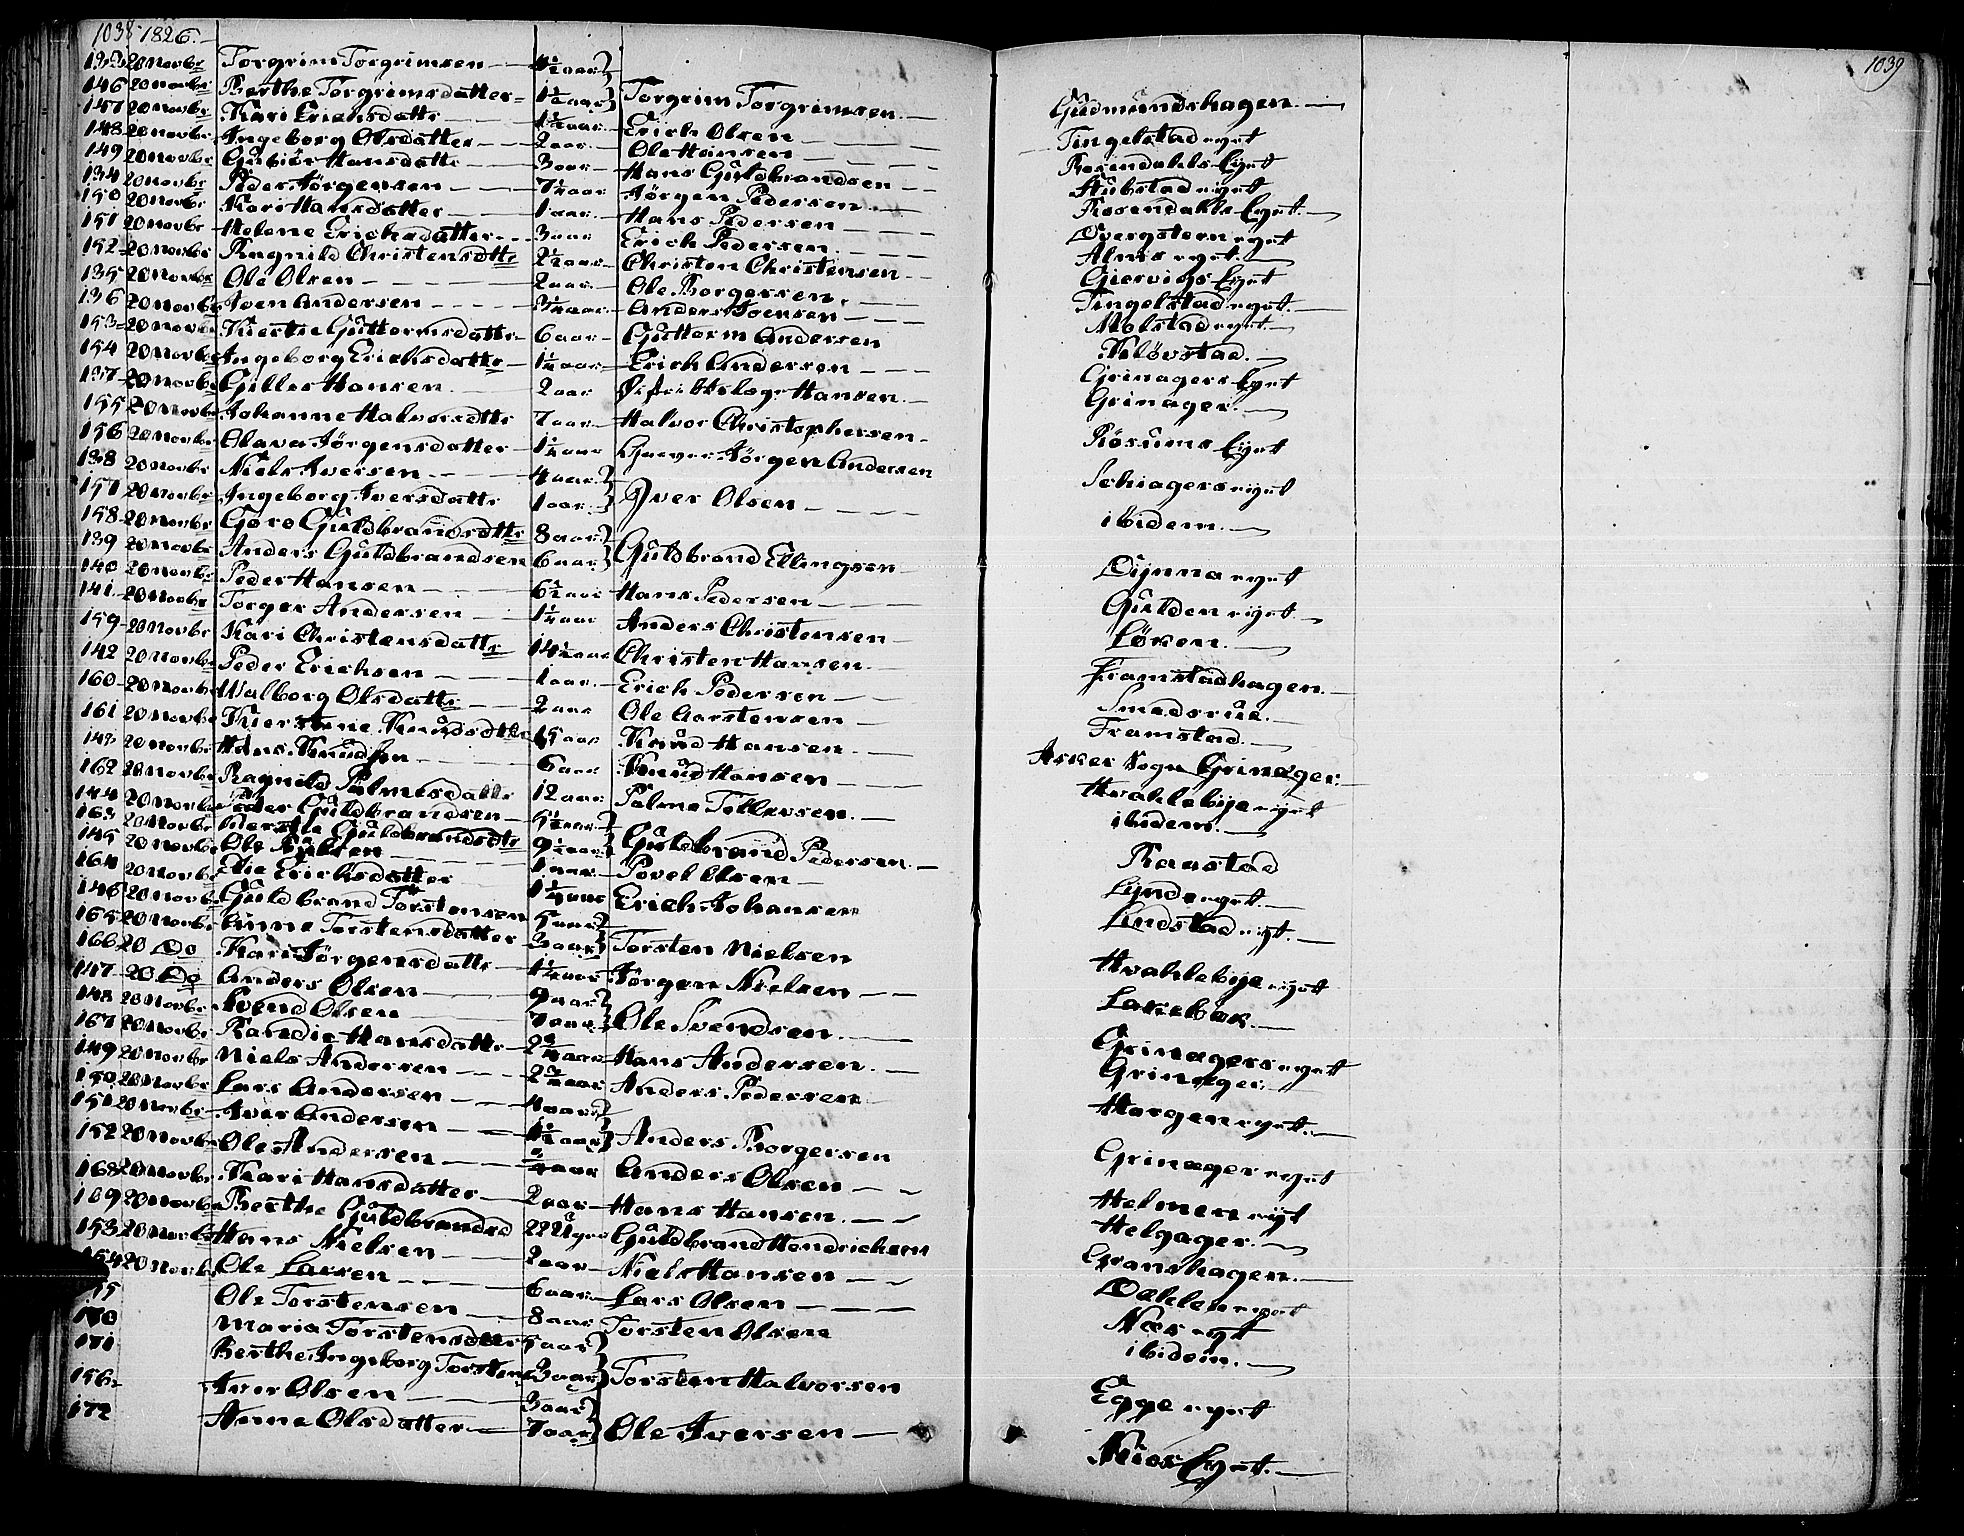 1038 1826.
133 20 Novbr Torgrim Torgrimsen 4½ aar
146 20 Novbr Berthe Torgrimsdatter 1½ aar Torgrim Torgrimsen
147 20 Novbr Kari Erichsdattr 1½ aar Erich Olsen
148 20 Novbr Ingeborg Olsdatter 2 aar Ole Hansen
149 20 Novbr Gubiör Hansdattr 3 aar Hans Guldbrandsen
134 20 Novbr Peder Jörgensen 7½ aar Jörgen Pedersen
150 20 Novbr Kari Hansdatter 1 aar Hans Pedersen
151 20 Novbr Helene Erichsdatter 3 aar Erich Pedersen
152 20 Novbr Ragnild Christensdttr 2½ aar Christen Christensen
135 20 Novbr Ole Olsen 2 aar Ole Borgersen
136 20 Novbr Joen Andersen 3½ aar Anders Joensen
153 20 Novbr Kierstie Guttormsdattr 6 aar Guttorm Andersen
154 20 Novbr Ingeborg Erichsdattr 1½ aar Erich Andersen
137 20 Novbr Giller Hansen 2 aar Hansen
155 20 Novbr Johanne Halvorsdttr 7 aar Halvor Christophersen
156 20 Novbr Olava Jörgensdatter 1½ aar Jörgen Andersen
138 20 Novbr Niels Iversen 4 aar
157 20 Novbr Ingeborg Iversdattr 1 aar Iver Olsen
158 20 Novbr Goro Guldbrandsdttr 8 aar
139 20 Novbr Anders Guldbrandsen 6 aar Guldbrand Ellingsen
140 20 Novbr Peder Hansen 6½ aar Hans Pedersen
141 20 Novbr Torger Andersen 1½ aar Anders Christensen
159 20 Novbr Kari Christensdattr 14½ aar Christen Hansen
142 20 Novbr Peder Erichsen 1 aar Erich Pedersen
160 20 Novbr Walborg Olsdattr 2 aar Ole Carstensen
161 20 Novbr Kierstene Knudsdttr 15 aar Knud Hansen
143 20 Novbr Hans Knudsen 6 aar Knud Hansen
162 20 Novbr Ragnild Palmesdattr 12 aar Palme Tollevsen
144 20 Novbr Peder Guldbrandsen 5½ aar
163 20 Novbr Kierstie Guldbrandsdttr 9½ aar Guldbrand Pedersen
145 20 Novbr Ole 1 aar Povel Olsen
164 20 Novbr Elie Erichsdatter 1½ aar Erich Johansen
146 20 Novbr Guldbrand Torstensen 5 aar
165 20 Novbr Anne Torstensdatter 3 aar Torsten Nielsen
166 20 Do Kari Jörgensdattr 1½ aar Jörgen Nielsen
147 20 Do Anders Olsen 9 aar
148 20 Novbr Svend Olsen 7 aar Ole Svendsen
167 20 Novbr Randie Hansdattr 2¾ aar Hans Andersen
149 20 Novbr Niels Andersen 2¾ aar Anders Pedersen
150 20 Novbr Lars Andersen 4 aar
151 20 Novbr Iver Andersen 1½ aar Anders Borgersen
152 20 Novbr Ole Andersen aar Anders Olsen
168 20 Novbr Kari Hansdatter 2 aar Hans Hansen
169 20 Novbr Berthe Guldbrandsd 22 Uger Guldbrand Hendrichsen
153 20 Novbr Hans Nielsen 2 aar Niels Hansen
154 20 Novbr Ole Larsen 6 aar Lars Olsen
Ole Torstensen 8 aar Torsten Olsen
170 Maria Torstensdttr 5 aar
171 Berthe Ingeborg Torstens 3 aar Torsten Halvorsen
156 Iver Olsen 3 aar
172 Anne Olsdatter 7 aar Ole Iversen
1039
Gudmundshagen.
Tingelstad eyet
Rosendahls Eyet
Hubstad eyet
Rosendahls Eyet.
Dvergsteen eyet
Alms eyet.
Giervigs Eyet
Tingelstad eyet.
Molstad eyet.
Klövstad.
Grinagers Eyet
Grinager.
Rösums Eyet
Schiagers eyet
ibidem.
Dynna eyet
Gulden eyet.
Löken.
Framstadhagen.
Smedsrue.
Framstad.
Asker Sogn Grinager.
Hvahlebye eyet
ibidem.
Raastad
Lynd eyet.
Lindstad eyt.
Hvahlebye eyet
Lakebek.
Grinagers eyet
Grinager.
Horgen eyet.
Grinager eyet
Helmen eyt
Helgager.
Granshagen.
Dahlen eyet
Næs eyt
ibidem.
Egge eyet
Eyet.